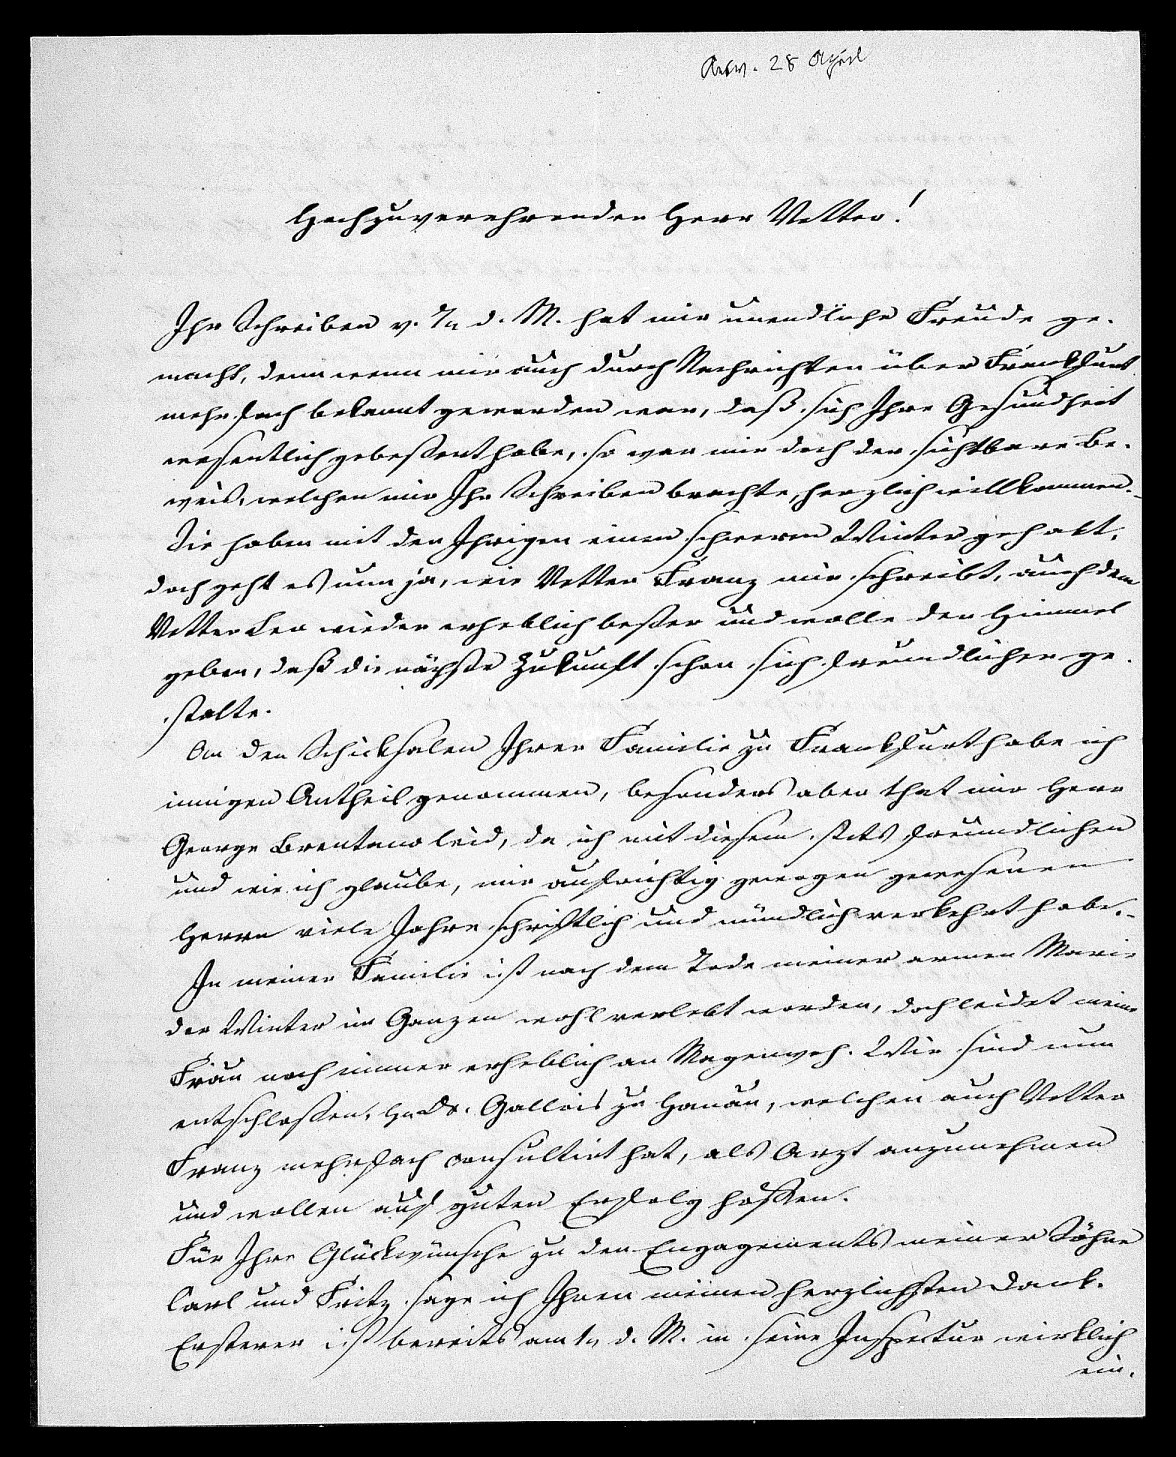 Antw. 28 April
Hochzuverehrender Herr Vetter!
Ihr Schreiben v. 7n d. M. hat mir unendliche Freude ge-
macht, denn wenn mir auch durch Nachrichten über Frankfurt
mehrfach bekannt geworden war, daß sich Ihre Gesundheit
wesentlich gebeßert habe, so war mir doch der sichtbare Be-
weis, welchen mir Ihr Schreiben brachte, herzlich willkommen.
Sie haben mit den Ihrigen einen schweren Winter gehabt,
doch geht es nun ja, wie Vetter Franz mir schreibt, auch dem
Vetter Leo wieder erheblich beßer und wolle der Himmel
geben, daß die nächste Zukunft schon sich freundlicher ge-
stalte.
An den Schicksalen Ihrer Familie zu Frankfurt habe ich
innigen Antheil genommen, besonders aber that mir Herr
George Brentano leid, da ich mit diesem stets freundlichen
und wie ich glaube, mir aufrichtig gewogen gewesenen
Herrn viele Jahre schriftlich und mündlich verkehrt habe.
In meiner Familie ist nach dem Tode meiner armen Marie
der Winter im Ganzen wohl verlebt worden, doch leidet meine
Frau noch immer erheblich an Magenweh. Wir sind nun
entschloßen, Hn Dr. Gallois zu Hanau, welchen auch Vetter
Franz mehrfach consultirt hat, als Arzt anzunehmen
und wollen auf guten Erfolg hoffen.
Für Ihre Glückwünsche zu den Engagements meiner Söhne
Carl und Fritz sage ich Ihnen meinen herzlichsten Dank.
Ersterer ist bereits am 1n d. M. in seine Inspectur wirklich
ein-